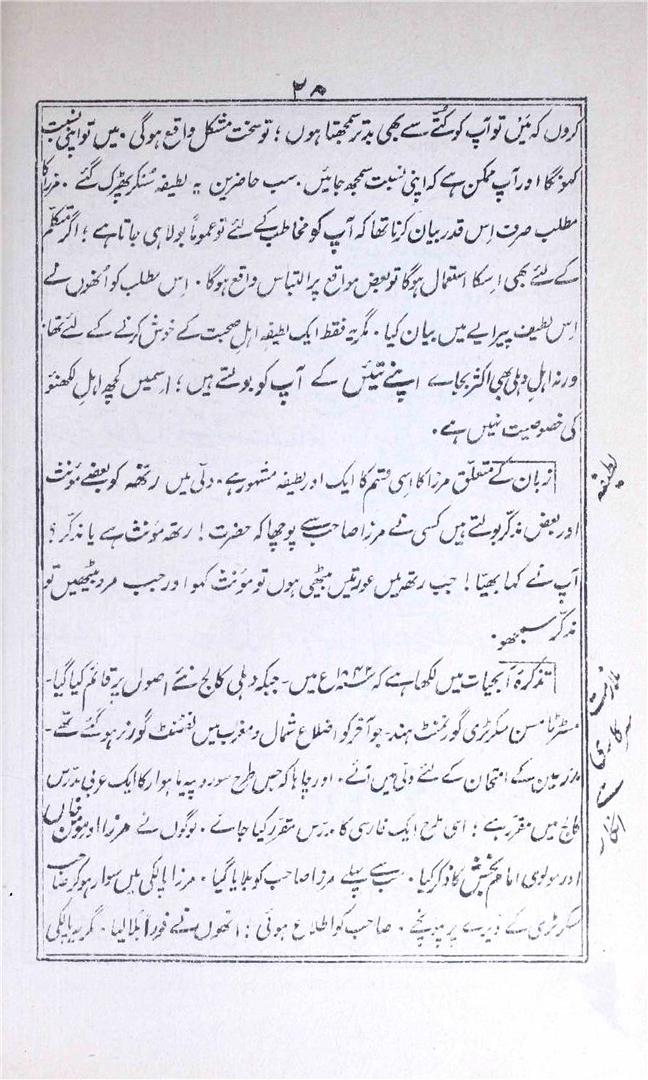 ۲۵
کروں کہ مَیں تو آپ کو کتّے سے بھی بدتر سمجھتا ہوں؛ تو سخت مشکل واقع ہوگی۔ میں تو اپنی نسبت
کہونگا اور آپ ممکن ہے کہ اپنی نسبت سمجھ جائیں۔ سب حاضرین یہ لطیفہ سُنکر پھڑک گئے۔ مرزا کا
مطلب صرف اِس قدر بیان کرنا تھا کہ آپ کو مخاطب کے لئے تو عموماً بولا ہی جاتا ہے؛ اگر متکلّم
کے لئے بھی اِسکا استعمال ہوگا تو بعض مواقع پر التباس واقع ہوگا۔ اِس مطلب کو اُنھوں نے
اِس لطیف پیرایے میں بیان کیا۔ مگر یہ فقط ایک لطیفہ اہلِ صحبت کے خوش کرنے کے لئے تھا۔
ورنہ اہلِ دہلی بھی اکثر بجاے اپنے تئیں کے آپ کو بولتے ہیں؛ اِسمیں کچھ اہلِ لکھنؤ
کی خصوصیت نہیں ہے۔
زبان کے متعلّق مرزا کا اِسی قسم کا ایک اور لطیفہ مشہور ہے۔ دلّی میں رتھ کو بعضے مؤنث
اور بعض مذکّر بولتے ہیں کسی نے مرزا صاحب سے پوچھا کہ حضرت! رتھ مؤنث ہے یا مذکّر؟
آپ نے کہا بھیّا! جب رتھ میں عورتیں بیٹھی ہوں تو مؤنث کہو اور جب مرد بیٹھیں تو
مذکّر سمجھو۔
تذکرۂ آبحیات میں لکھا ہے کہ ۱۸۴۲ع میں۔ جبکہ دہلی کالج نئے اصول پر قائم کیا گیا۔
مسٹر ٹامسن سکرٹری گورنمنٹ ہند۔ جو آخر کو اضلاع شمال و مغرب میں لفٹنٹ گورنر ہو گئے تھے۔
مدرسین کے امتحان کے لئے دلّی میں آئے۔ اور چاہا کہ جس طرح سو روپیہ ماہوار کا ایک عربی مدرس
کالج میں مقرر ہے؛ اسی طرح ایک فارسی کا مدرس مقرر کیا جائے۔ لوگوں نے مرزا اور مومن خاں
اور مولوی امام بخش کا ذکر کیا۔ سب سے پہلے مرزا صاحب کو بلایا گیا۔ مرزا پالکی میں سوار ہو کر صاحب
سکرٹری کے ڈیرے پر پہونچے۔ صاحب کو اطلاع ہوئی؛ اُنھوں نے فوراً بُلا لیا۔ مگر یہ پالکی
لطیفہ
ملازمت
سرکاری
سے
انکار